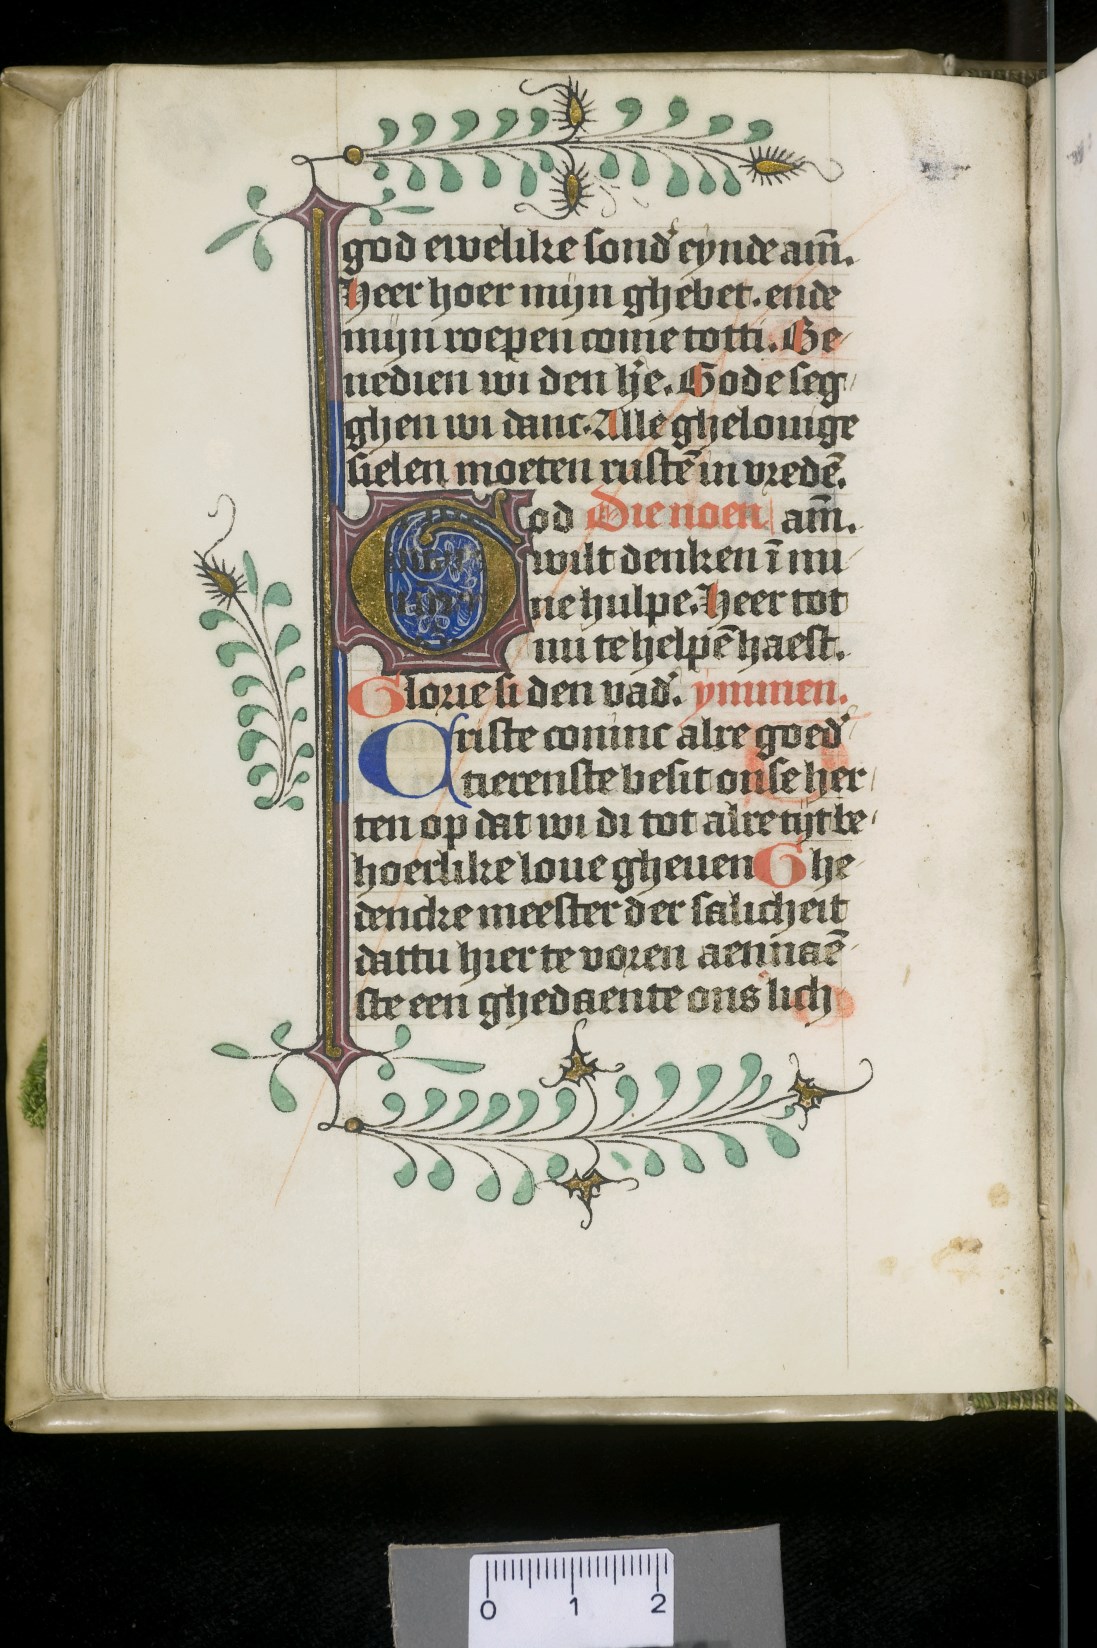 god ewelike sond' eynde am̄.
Heer hoer mijn ghebet. ende
mijn roepen come totti. Be
nedien wi den h̄e. Gode seg
ghen wi danc. Alle ghelouige
sielen moeten rustē in vredē.
God Die noen am̄.
wilt denken ī mi
ne hulpe. Heer tot
mi te helpē haest.
Glorie si den vad'. ymmen.
Criste coninc alre goed'
tierenste besit onse her
ten op dat wi di tot alre tijt be
hoerlike loue gheuen Ghe
dencke meester der salicheit
dattu hier te voren aennaē
ste een ghedaente ons lich
0 1 2